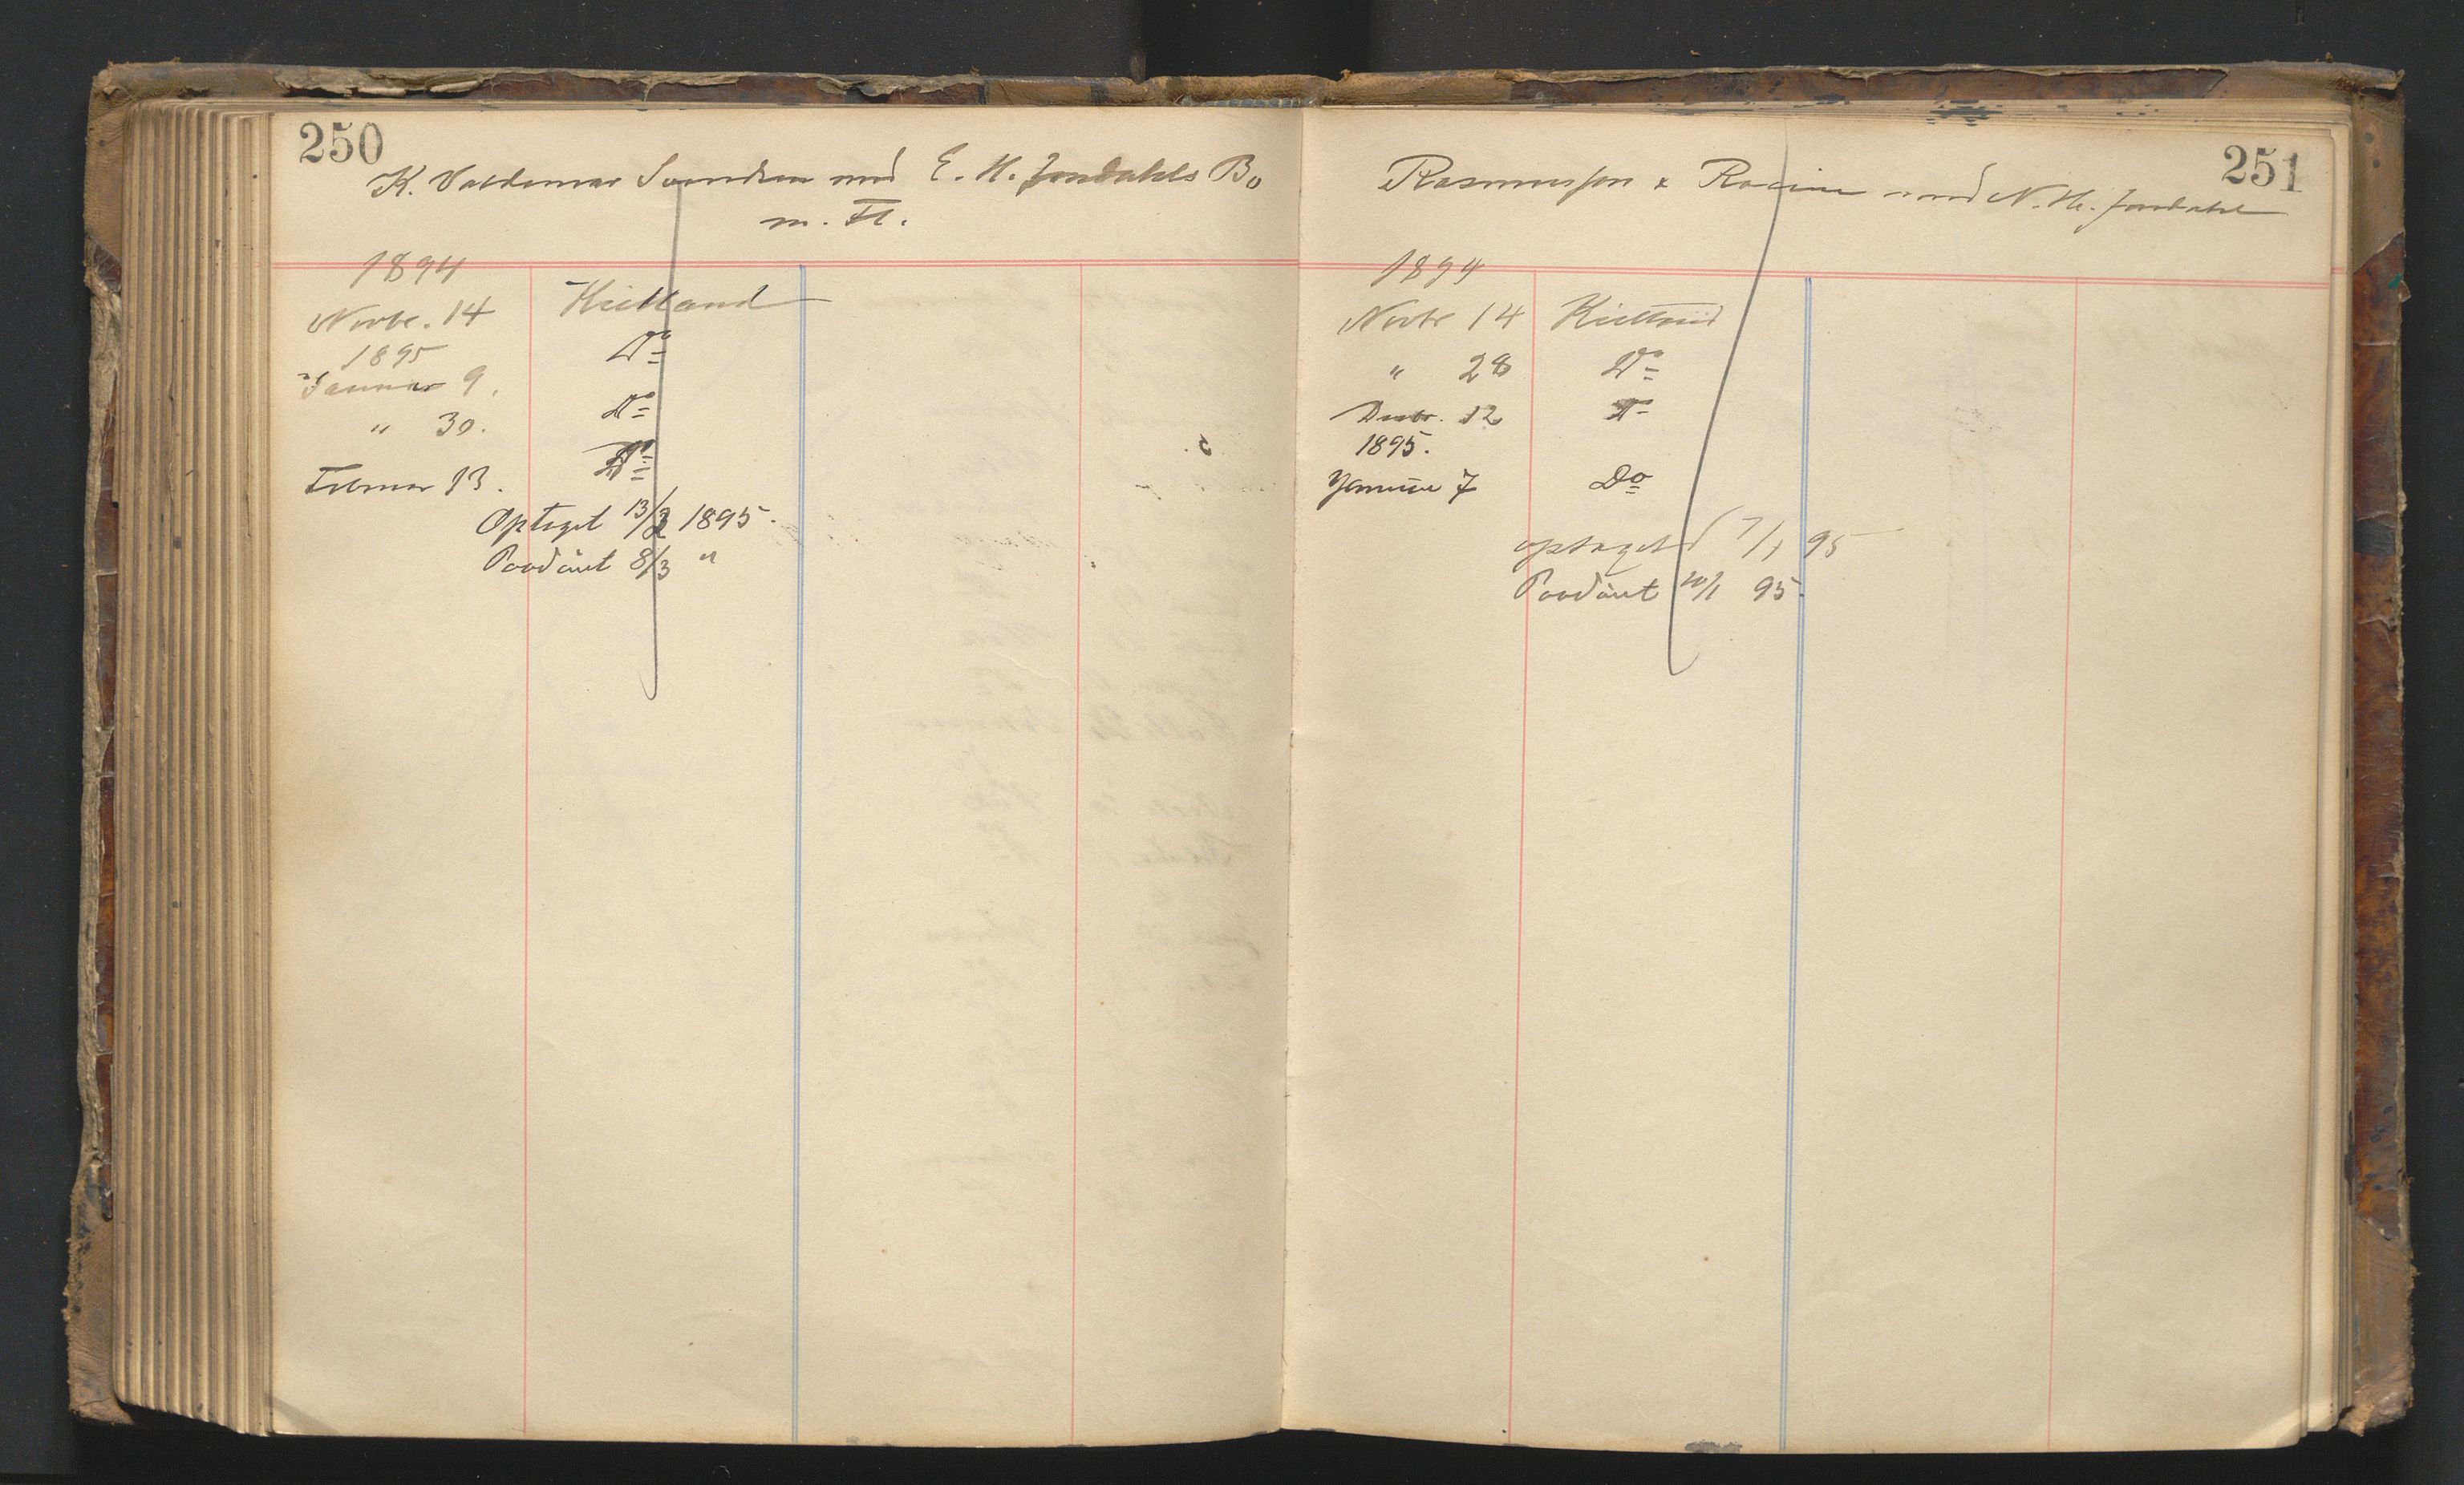 250
K. Valdemar Svendsen mod E. H. Jondahls Bo
m. Fl.
1894
Novbr. 14 Kielland
1895 Do
Januar 9.
" 30. Do
Februar 13. Do
Optaget 13/2 1895.
Paadömt 8/3 "
251
Rasmussen & Racine mod N. H. Jondahl
1894
Novbr 14 Kielland
" 28 Do
Decbr. 12 Do
1895.
Januar 7 Do
optaget 7/1 95
Paadömt 10/1 95.